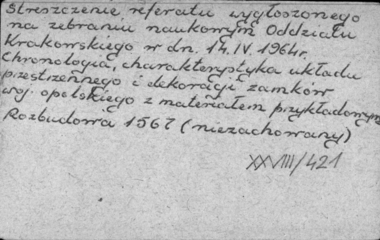 Streszczenie referatu wygłoszonego
na zebraniu naukowym Oddziału
Krakowskiego w dn. 14.IV.1964r.
Chronologia, charakterystyka układu
przestrzennego i dekoracji zamków
woj. opolskiego z materiałem przykładowym
Rozbudowa 1567 (niezachowany)
XXVIII/421